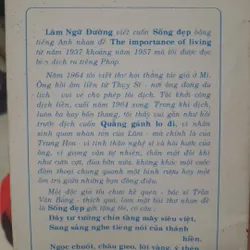 Lâm Ngữ Đường viết cuốn Sống đẹp bằng
tiếng Anh nhan đề The importance of living
từ năm 1937 khoảng năm 1957 mà tôi được đọc
bản dịch ra tiếng Pháp.
Năm 1964 tôi viết thơ hỏi thăng tác giả ở Mĩ.
Ông hồi âm liền từ Thụy Sĩ - nơi ông đang du
lịch - vui vẻ cho phép tôi dịch. Tôi khởi công
dịch liền, cuối năm 1964 xong. Trong khi dịch,
luôn ba bốn tháng, tôi thấy vui gần như hồi
trước dịch cuốn Quảng gánh lo đi, vì nhân
sinh quan nhàn tản của Lâm - mà chính là của
Trung Hoa - vì tinh thần nghệ sĩ và hài hước của
ông, vì giọng văn tự nhiên, thân mật đôi khi
như cười cợt, đùa bỡn của ông, không khác một cuộc
đàm thoại chung quanh một bình rượu hay một
ấm trà giữa những bạn đồng điệu.
Mội độc giả tôi chưa hề quen - bác sĩ Trần
Văn Bảng - thích quá, làm ngài bài thơ nhan đề
là Sống đẹp gởi tặng tôi, có câu:
Đây tư tưởng chín tầng mây siêu việt,
Sang sảng nghe tiếng nói của thánh
hiền.
Ngọc chuốt, châu gieo, lời vàng, ý thép